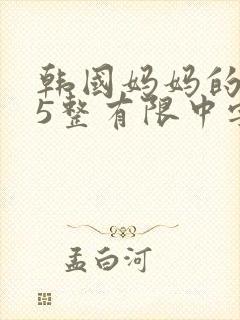 韩国妈妈的
5整有限中字
孟白河